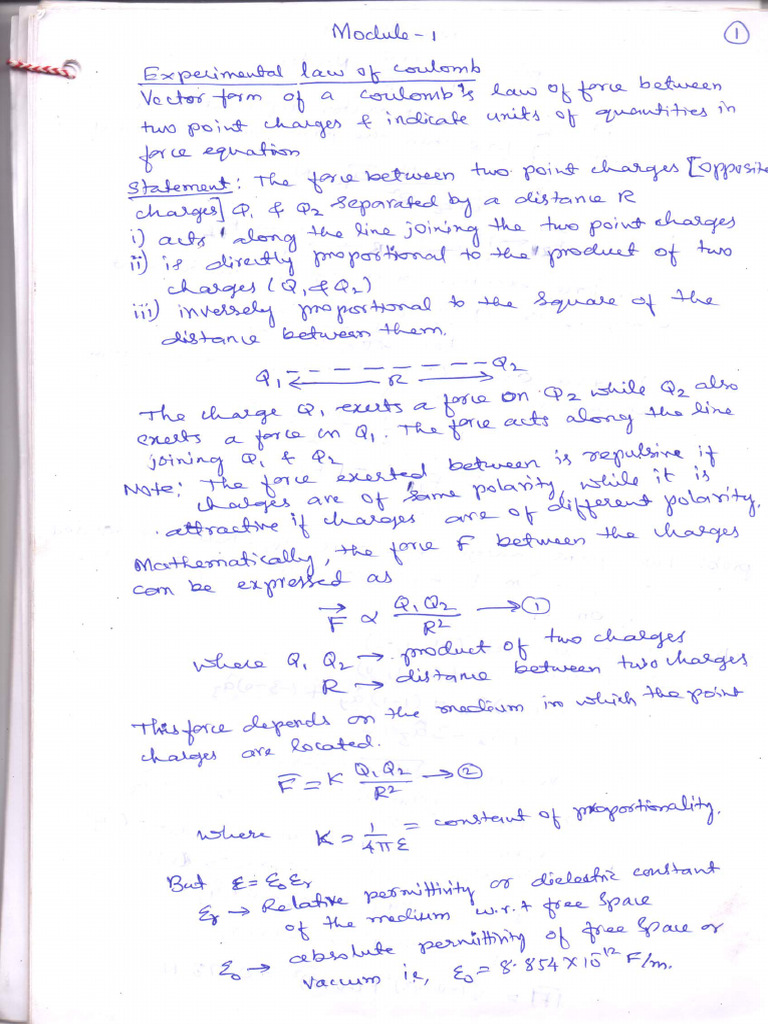 Module-1
①
Experimental law of coulomb
Vector form of a coulomb's law of force between
two point charges & indicate units of quantities in
force equation
Statement: The force between two point charges [opposite
charges] Q1 & Q2 separated by a distance R
i) acts along the line joining the two point charges
ii) is directly proportional to the product of two
charges (Q1 & Q2)
iii) inversely proportional to the square of the
distance between them.
Q1 ← – – – R – – – → Q2
The charge Q1 exerts a force on Q2 while Q2 also
exerts a force on Q1. The force acts along the line
joining Q1 & Q2
Note: The force exerted between is repulsive if
charges are of same polarity, while it is
attractive if charges are of different polarity.
Mathematically, the force F between the charges
can be expressed as
F⃗ ∝ Q1 Q2 / R² → ①
where Q1 Q2 → product of two charges
R → distance between two charges
This force depends on the medium in which the point
charges are located.
F̅ = K Q1 Q2 / R² → ②
where K = 1/4πε = constant of proportionality.
But ε = ε0 εr
εr → Relative permittivity or dielectric constant
of the medium w.r.t free space
ε0 → absolute permittivity of free space or
vacuum i.e, ε0 = 8.854 × 10⁻¹² F/m.